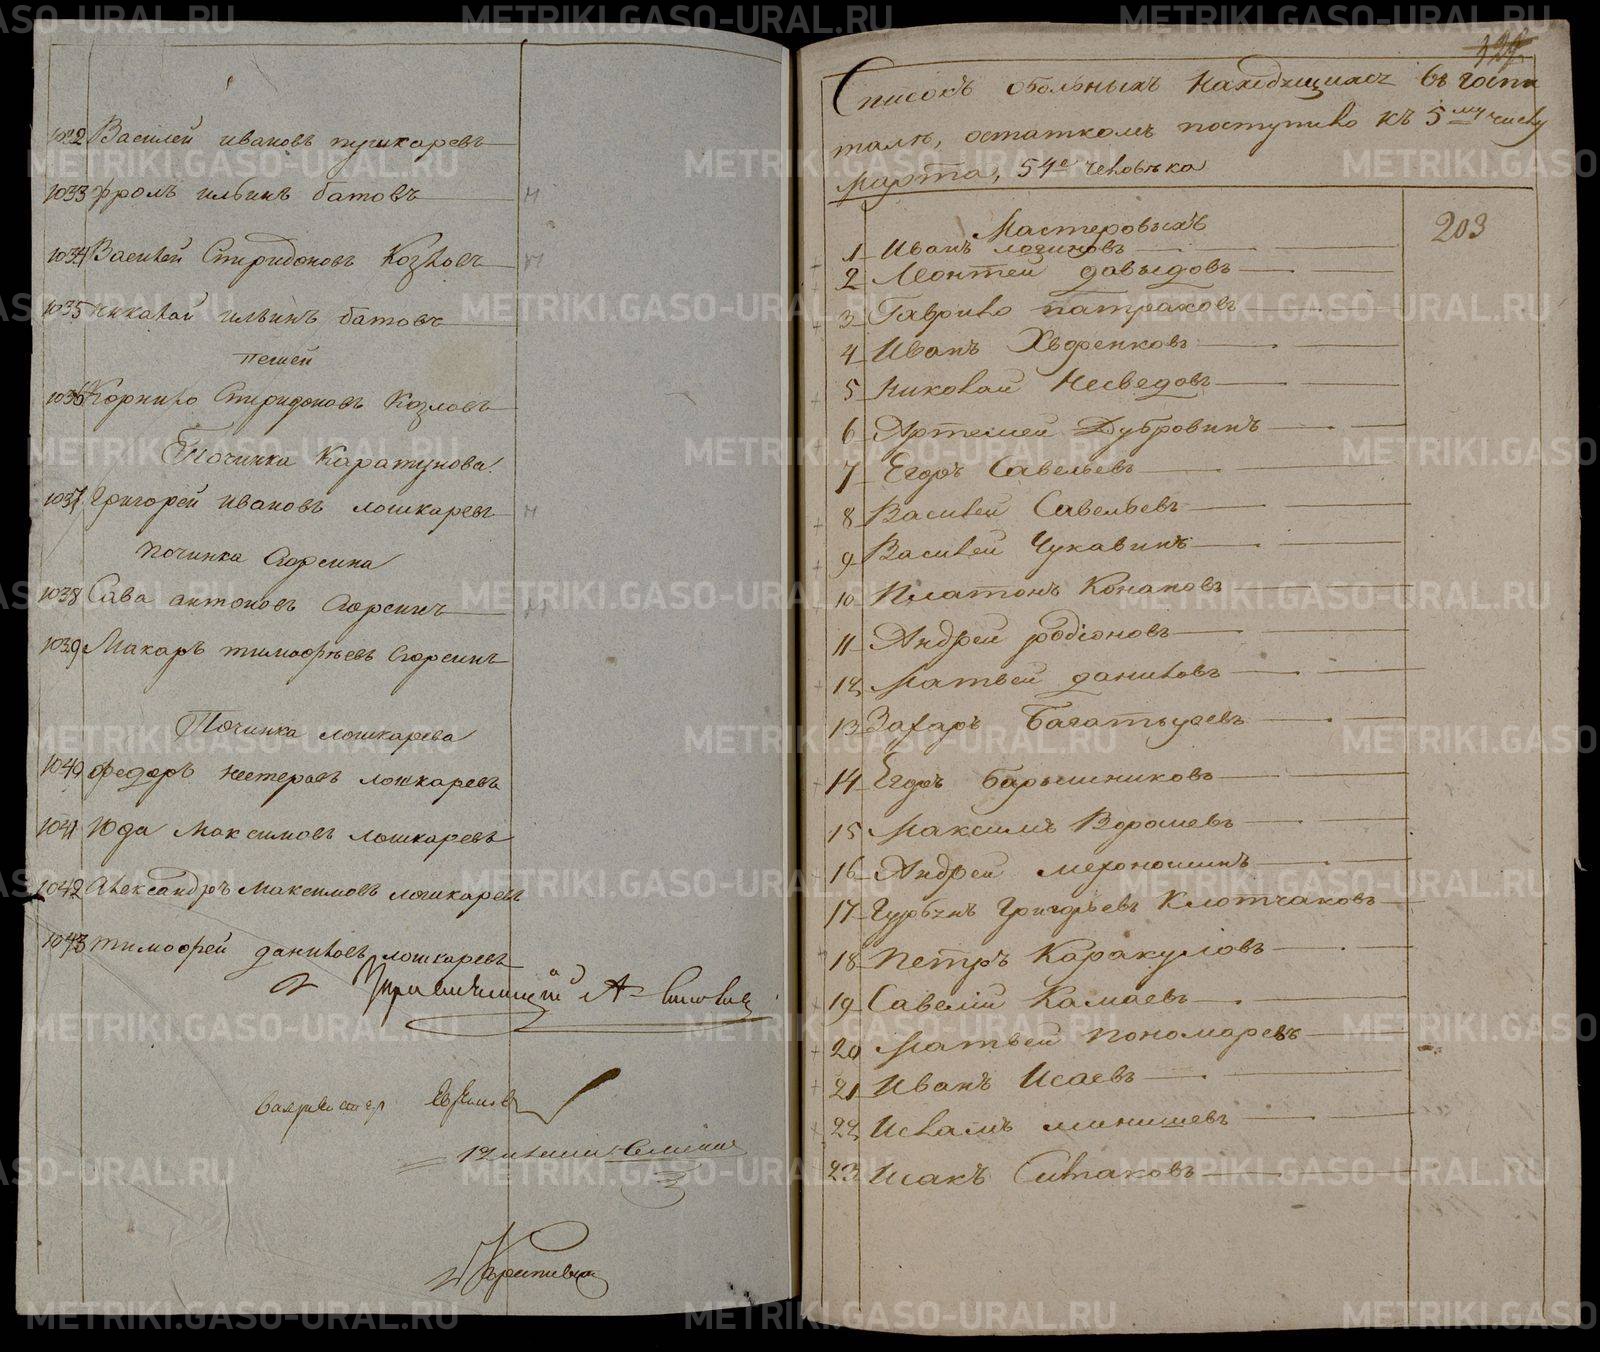 1032 Василей ивановъ пушкаревъ
1033 фролъ ильинъ батовъ
1034 Василей Спиридоновъ Козловъ
1035 николай ильинъ батовъ
пешей
1036 Корнило Спиридоновъ Козловъ
Починка Каратунова
1037 Григорей ивановъ лошкаревъ
починка Сюрсина
1038 Сава антоновъ Сюрсинъ
1039 Макаръ тимофѣевъ Сюрсинъ
Починка лошкарева
1040 федоръ нестеровъ лошкаревъ
1041 Юда максимовъ лошкаревъ
1042 Александръ Максимовъ лошкаревъ
1043 тимофей даниловъ лошкаревъ
Списокъ обольныхъ находящихся въ госпи
талѣ, остаткомъ поступило къ 5му числу
марта, 54е человѣка
203
Мастеровыхъ
1 Иванъ логиновъ
2 Леонтей давыдовъ
3 Гаврило патраковъ
4 Иванъ Хѣфенковъ
5 николай Несведовъ
6 Артемей Дубровинъ
7 Егоръ Савельевъ
8 Василей Савельевъ
9 Василей Чукавинъ
10 Платонъ Конаковъ
11 Андрей родіоновъ
12 Матвей даниловъ
13 Захаръ Багатыревъ
14 Егоръ барышниковъ
15 Максимъ Ворошевъ
16 Андрей мерзношинъ
17 Григорьевъ Клотчаковъ
18 Петръ Каракуловъ
19 Савелій Камаевъ
20 Матвей пономаревъ
21 Иванъ Исаевъ
22 Исламъ минишевъ
23 Исакъ Ситаковъ
METRIKI.GASO-URAL.RU